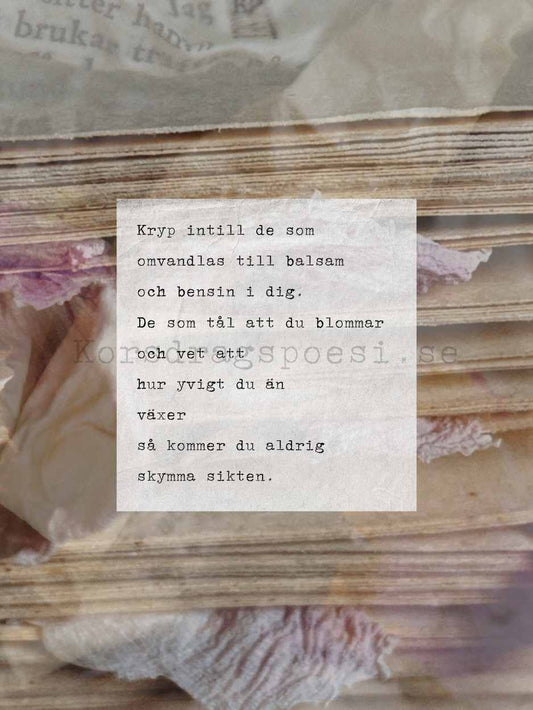 Jag
brukar
Kryp intill de som
omvandlas till balsam
och bensin i dig.
De som tål att du blommar
Korsdragspoesi.se
och vet att
hur yvigt du än
växer
så kommer du aldrig
skymma sikten.